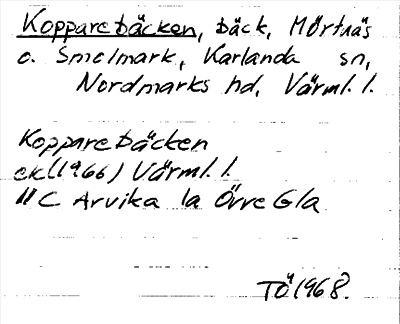 Kopparebäcken, bäck, Mörtnäs
o. Smolmark, Karlanda sn,
Nordmarks hd, Värml. l.
Kopparebäcken
ek(1966) Värml. l.
11C Arvika 1a Övre Gla
TÖ 1968.